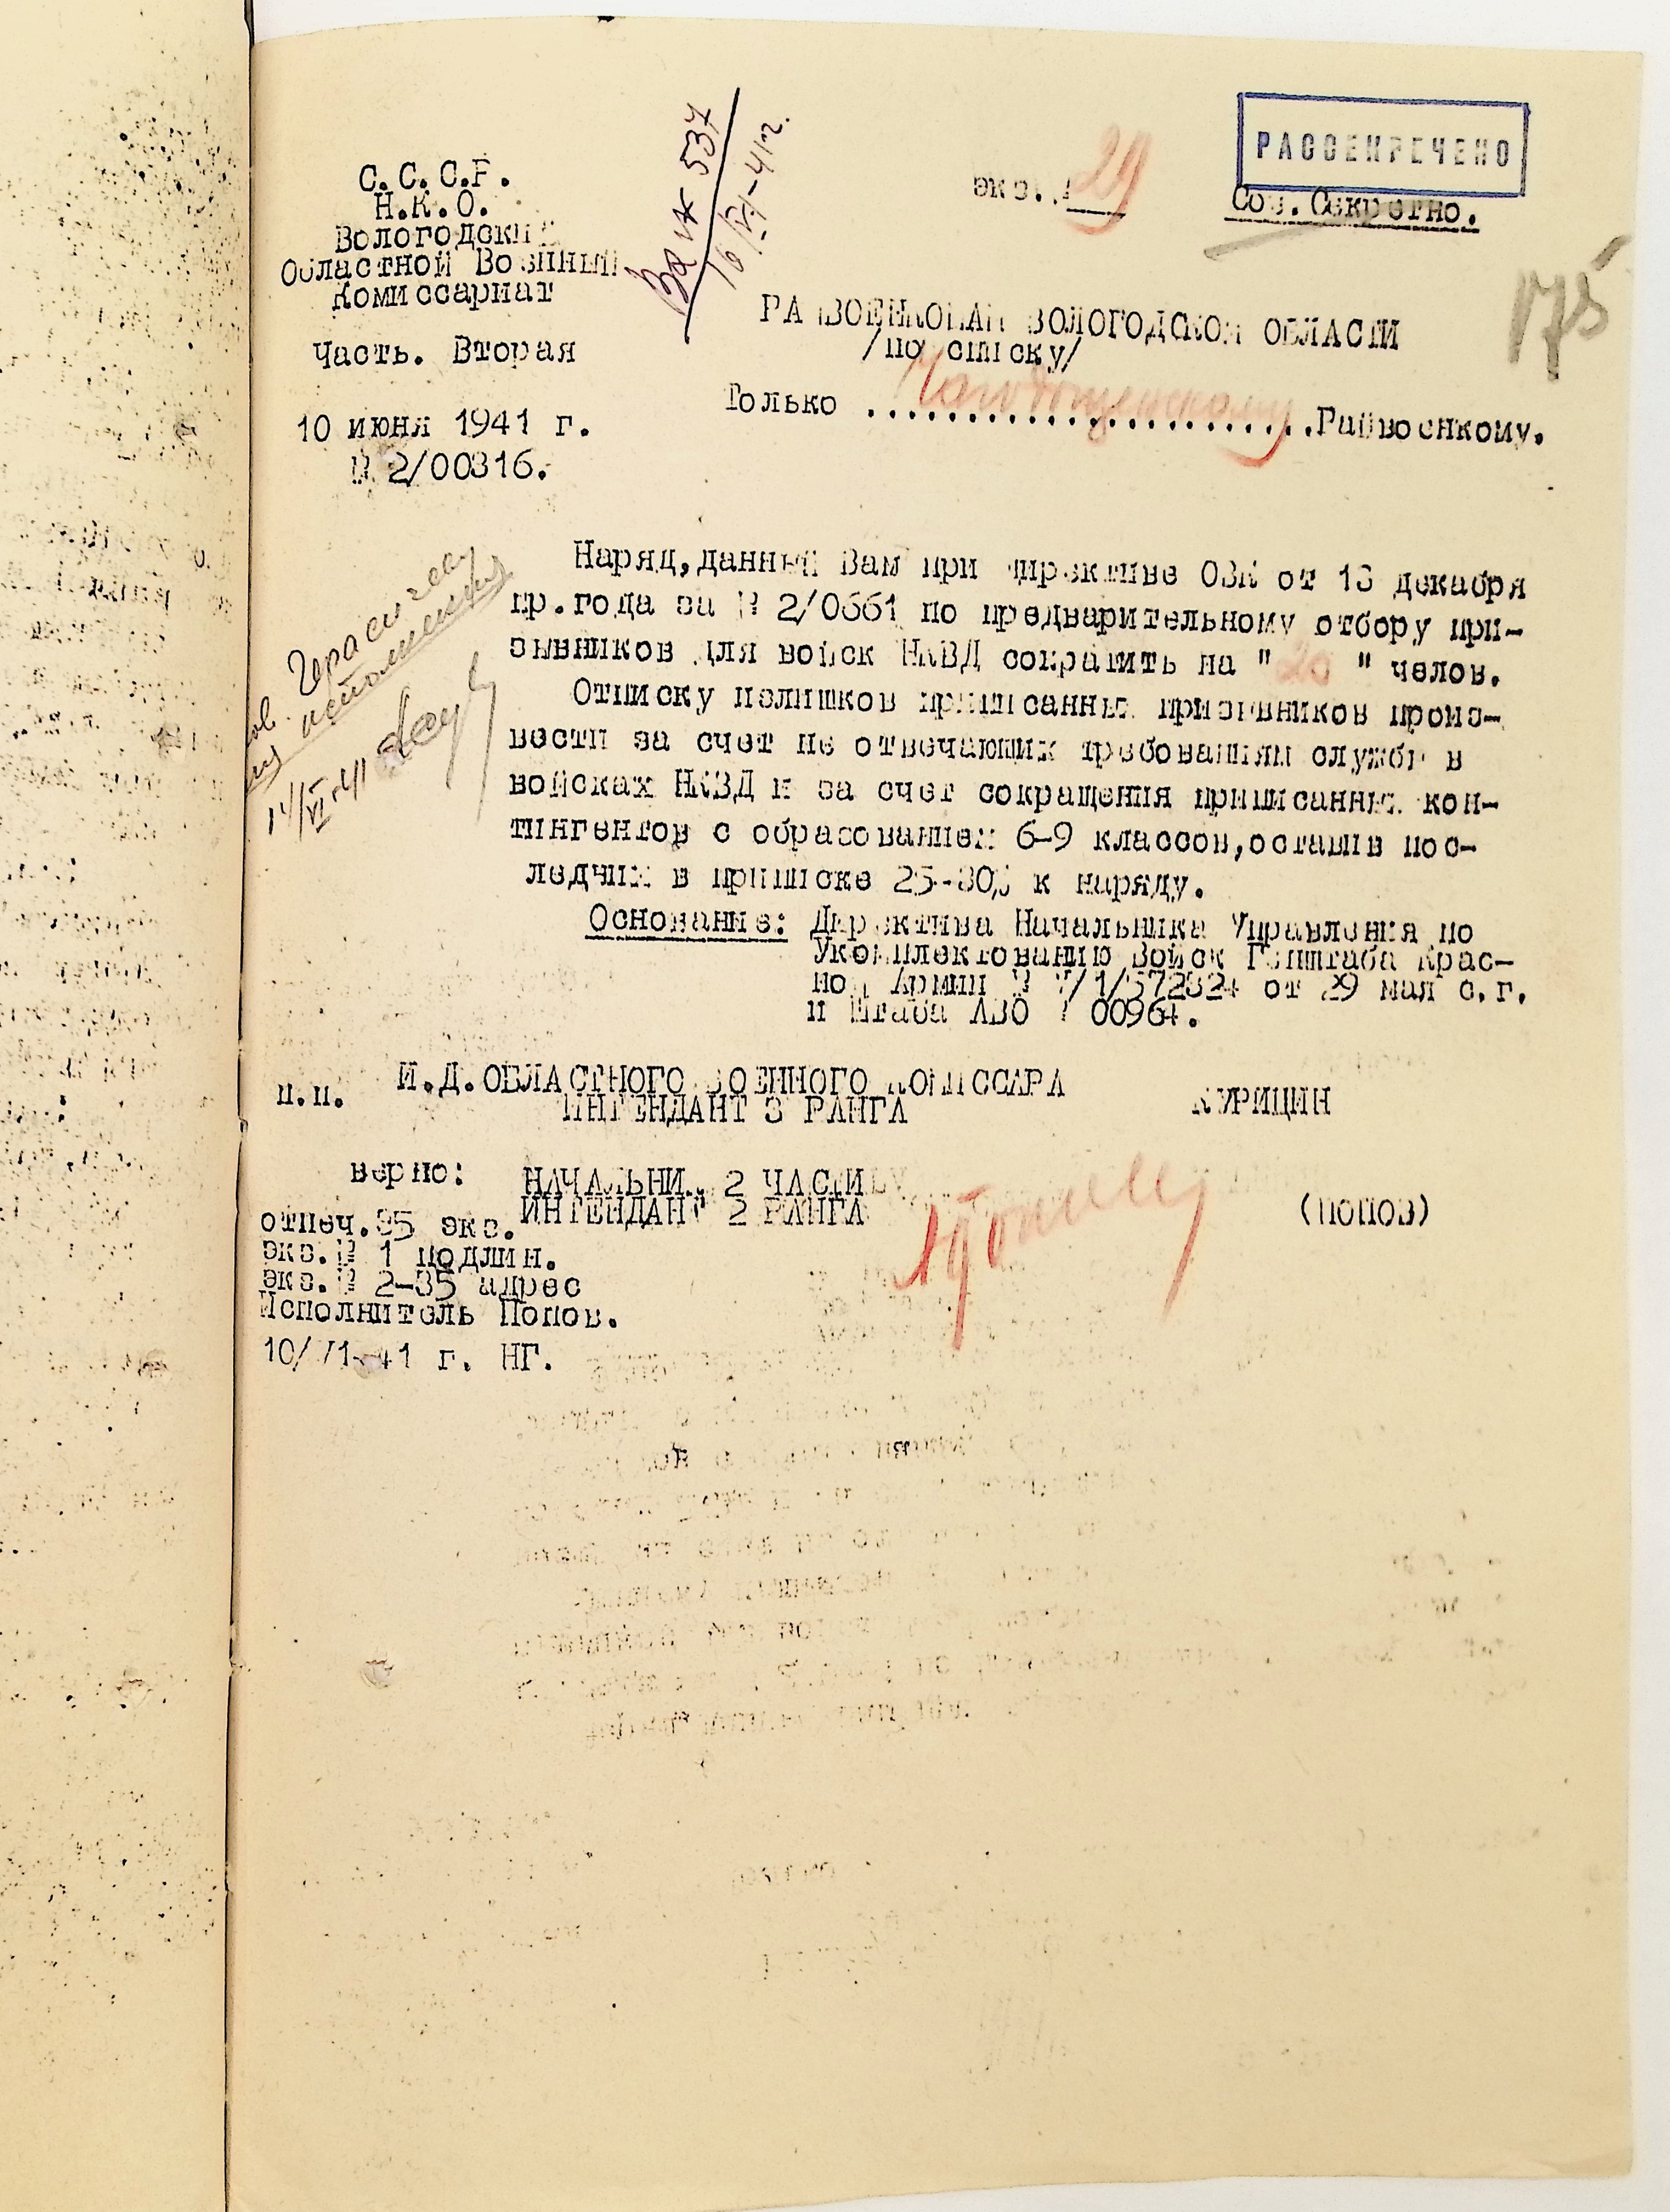 РАССЕКРЕЧЕНО
Сов. Секретно.
экз. 29
175
С.С.С.Р.
Н.К.О.
Вологодский
Областной Военный
Комиссариат
Часть. Вторая
10 июня 1941 г.
№ 2/00316.
Вх № 537
16/VI-41г.
РАЙВОЕНКОМАМ ВОЛОГОДСКОЙ ОБЛАСТИ
/по списку/
Только ........................Райвоенкому.
Наряд,данный Вам при директиве ОВК от 13 декабря
пр.года за № 2/0661 по предварительному отбору при-
зывников для войск НКВД сократить на "20" челов.
Отписку излишков приписанных призывников произ-
вести за счет не отвечающих требованиям службы в
войсках НКВД и за счет сокращения приписанных кон-
тингентов с образованием 6-9 классов,оставив пос-
ледних в приписке 25-30% к наряду.
Основание: Директива Начальника Управления по
Укомплектованию Войск Генштаба Крас-
ной Армии № от 29 мая с.г.
и Штаба АВО № 00964.
п.п. И.Д.ОБЛАСТНОГО ВОЕННОГО КОМИССАРА
ИНТЕНДАНТ 3 РАНГА КУРИЦИН
верно: НАЧАЛЬНИК 2 ЧАСТИ
ИНТЕНДАНТ 2 РАНГА (ПОПОВ)
отпеч.35 экз.
экз.№ 1 подлин.
экз.№ 2-35 адрес
Исполнитель Попов.
10/VI-41 г. НГ.
14/VI-41